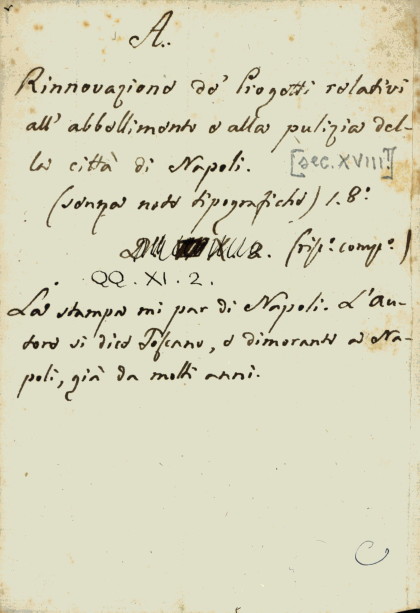 A.
Rinnovazione de' Progetti relativi
all' abbellimento e alla pulizia del-
la città di Napoli. [sec. XVIII]
(senza note tipografiche) 1. 8°.
2. (risp.e comp.e)
QQ. XI. 2.
La stampa mi par di Napoli. L'Au-
tore si dice Toscano, e dimorante a Na-
poli, già da molti anni.